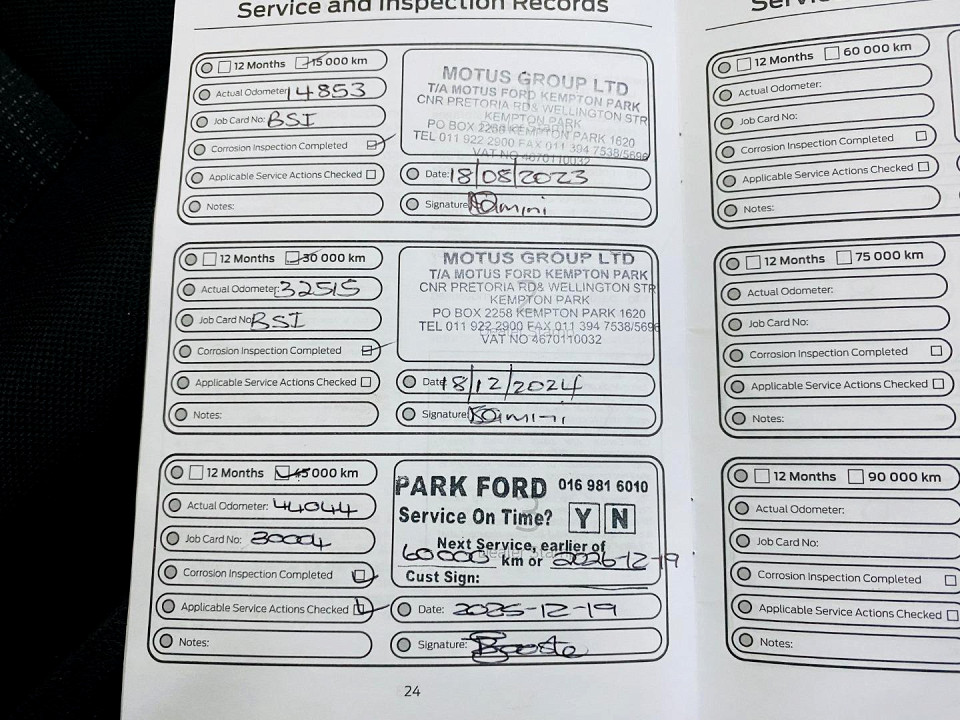 Service and Inspection Records
12 Months 15 000 km
Actual Odometer: 14853
Job Card No: BSI
Corrosion Inspection Completed
Applicable Service Actions Checked
Notes:
MOTUS GROUP LTD
T/A MOTUS FORD KEMPTON PARK
CNR PRETORIA RD& WELLINGTON STR
KEMPTON PARK
PO BOX 2258 KEMPTON PARK 1620
TEL 011 922 2900 FAX 011 394 7538/5696
VAT NO 4670110032
Date: 18/08/2023
Signature:
12 Months 30 000 km
Actual Odometer: 32515
Job Card No: BSI
Corrosion Inspection Completed
Applicable Service Actions Checked
Notes:
MOTUS GROUP LTD
T/A MOTUS FORD KEMPTON PARK
CNR PRETORIA RD& WELLINGTON STR
KEMPTON PARK
PO BOX 2258 KEMPTON PARK 1620
TEL 011 922 2900 FAX 011 394 7538/5696
VAT NO 4670110032
Date: 18/12/2024
Signature:
12 Months 45 000 km
Actual Odometer: 44044
Job Card No: 30004
Corrosion Inspection Completed
Applicable Service Actions Checked
Notes:
PARK FORD 016 981 6010
Service On Time? Y N
Next Service, earlier of
60 000 km or 2026-12-19
Cust Sign:
Date: 2025-12-19
Signature:
24
12 Months 60 000 km
Actual Odometer:
Job Card No:
Corrosion Inspection Completed
Applicable Service Actions Checked
Notes:
12 Months 75 000 km
Actual Odometer:
Job Card No:
Corrosion Inspection Completed
Applicable Service Actions Checked
Notes:
12 Months 90 000 km
Actual Odometer:
Job Card No:
Corrosion Inspection Completed
Applicable Service Actions Checked
Notes: